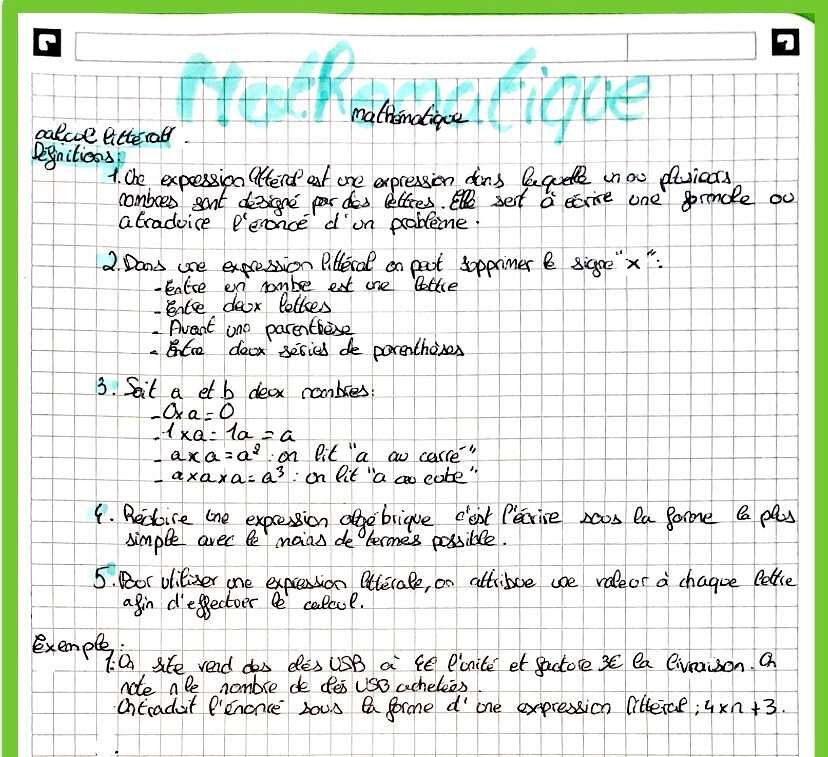 Mathématique
mathématique
calcul littéral.
Définitions:
1. Une expression littéral est une expression dans laquelle un ou plusieurs
nombres sont désigné par des lettres. Elle sert à écrire une formule ou
a traduire l'énoncé d'un problème.
2. Dans une expression littéral on peut supprimer le signe "x":
-Entre un nombre est une lettre
-Entre deux lettres
- Avant une parenthèse
- Entre deux séries de parenthèses
3. Soit a et b deux nombres:
-0xa=0
-1xa=1a=a
- axa=a²: on lit "a au carré"
- axaxa=a³: on lit "a au cube"
4. Réduire une expression algébrique c'est l'écrire sous la forme la plus
simple avec le moins de termes possible.
5. Pour utiliser une expression littérale, on attribue une valeur à chaque lettre
afin d'effectuer le calcul.
Exemple:
1. Un site vend des clés USB à 4€ l'unité et facture 3€ la livraison. On
note n le nombre de clés USB achetées.
On traduit l'énoncé sous la forme d'une expression littéral; 4xn+3.